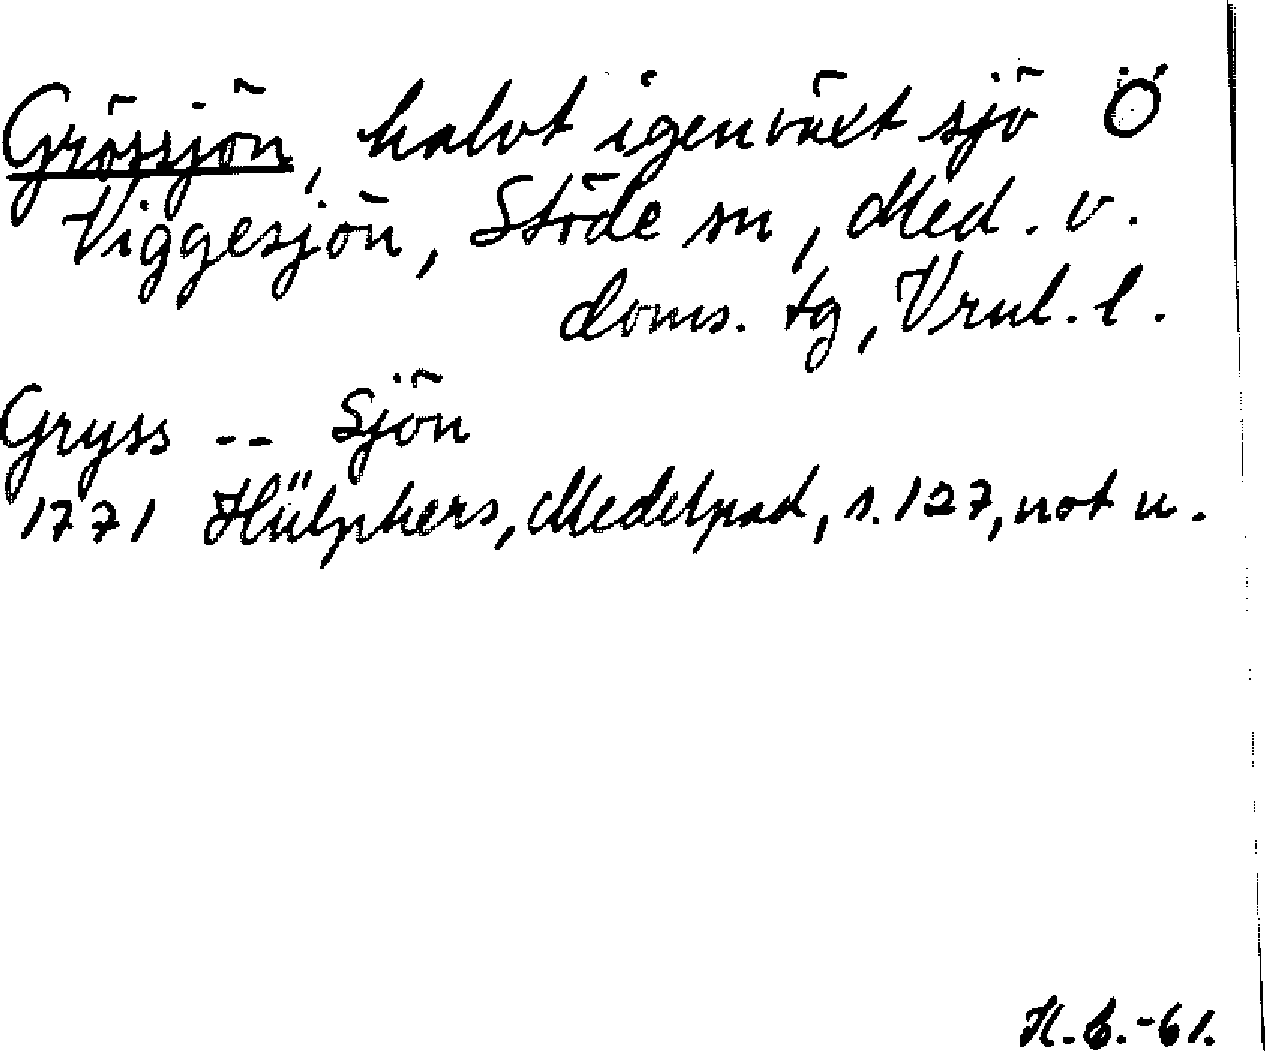 Grössjön, halvt igenväxt sjö Ö
Viggesjön, Stöde sn, Med. v.
doms. tg, Vrnl. l.
Gryss -- Sjön
1771 Hülphers, Medelpad, s. 127, not u.
H.C.-61.